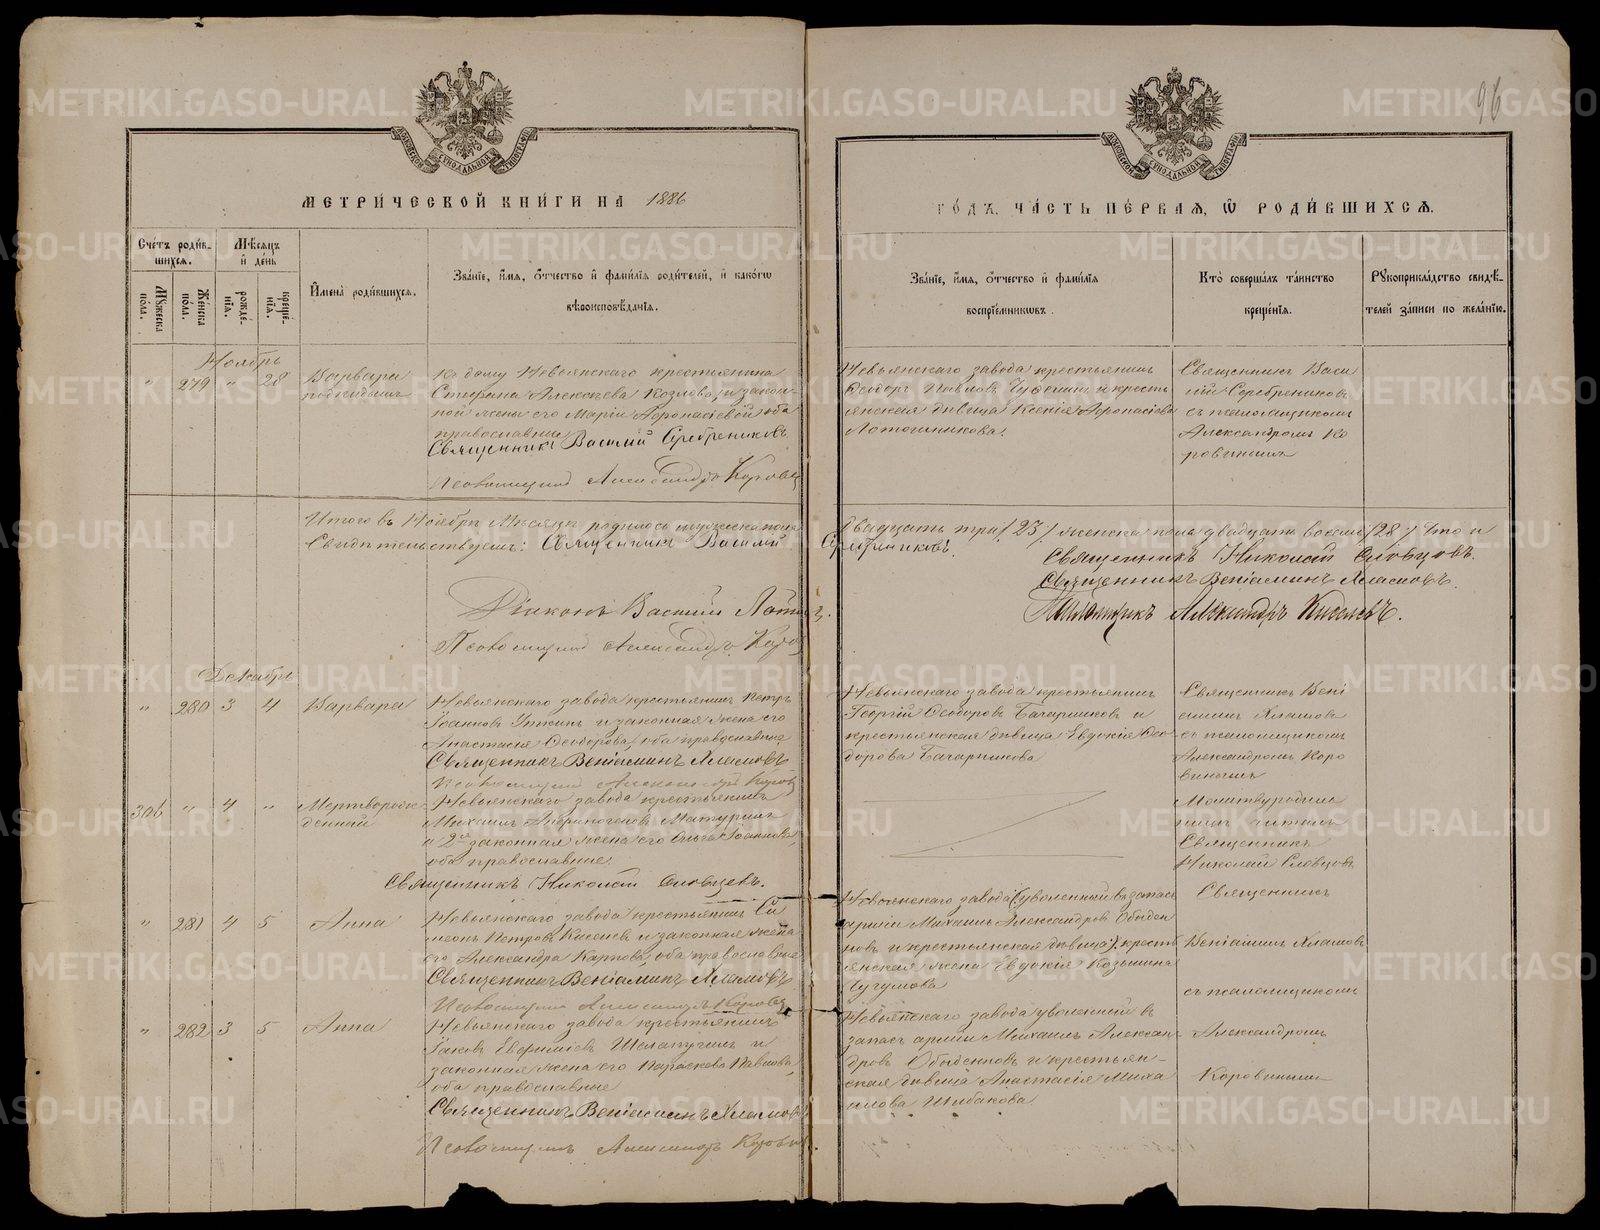 96
МОСКОВСКОЙ СѴНОДАЛЬНОЙ ТИПОГРАФІИ
МОСКОВСКОЙ СѴНОДАЛЬНОЙ ТИПОГРАФІИ
МЕТРИ́ЧЕСКОЙ КНИ́ГИ НА 1886
ГО́ДЪ, ЧА́СТЬ ПЕ́РВАЯ, Ѿ РОДИ́ВШИХСЯ.
Сче́тъ роди́в-
шихся.
Мꙋжеска по́ла.
Же́нска по́ла.
Мѣ́сяцъ и҆ де́нь
рожде́-нїя.
креще́-нїя.
И҆мена̀ роди́вшихся.
Зва́нїе, и҆́мя, ѻ҆́тчество и҆ фами́лїя роди́телей, и҆ како́гѡ
вѣроисповѣ́данїя.
Зва́нїе, и҆́мя, ѻ҆́тчество и҆ фами́лїя
воспрїе́мникѡвъ.
Кто̀ соверша́лъ та́инство
креще́нїя.
Рꙋкоприкла́дство свидѣ́-
телей за́писи по жела́нїю.
Ноябрь
" 279 " 28 Варвара
подкидышъ
Къ дому Невьянскаго крестьянина
Стефана Алексѣева Козлова, и закон-
ной жены его Маріи Аѳонасіевой, оба
православные
Священникъ Василій Серебрениковъ
Псаломщикъ Александръ
Невьянскаго завода крестьянинъ
Ѳеодоръ Павловъ и кресть
янская дѣвица Ксенія Аѳонасіева
Лотошникова.
Священникъ Васи
лій Серебрениковъ
съ псаломщикомъ
Александромъ Ко
ровинымъ
Итого въ Ноябрѣ мѣсяцѣ родилось мужеска пола
двадцать три /23/ женска пола двадцать восемь /28/ Что и
Свидѣтельствуемъ: Священникъ Василій Серебрениковъ.
Священникъ Николай Словцовъ.
Священникъ Веніаминъ Хламовъ.
Діаконъ Василій
Псаломщикъ Александръ Киселевъ.
Псаломщикъ Александръ
Декабрь
" 280 3 4 Варвара
Невьянскаго завода крестьянинъ Петръ
Іоанновъ и законная жена его
Анастасія Ѳеодорова, оба православные
Священникъ Веніаминъ Хламовъ
Псаломщикъ Александръ
Невьянскаго завода крестьянинъ
Георгій Ѳеодоровъ Багарниковъ и
крестьянская дѣвица Евдокія Ѳео-
дорова Багарникова
Священникъ Вені
аминъ Хламовъ
съ псаломщикомъ
Александромъ Коро
винымъ
306 " 4 " Мертворож-
денный
Невьянскаго завода крестьянинъ
Михаилъ Матуринъ
и 2я законная жена его Ольга Іоаннова,
оба православные.
Священникъ Николай Словцовъ.
читалъ
Священникъ
Николай Словцовъ
" 281 4 5 Анна
Невьянскаго завода крестьянинъ Си
меонъ Петровъ и законная жена
его Александра Карпова, оба православные
Священникъ Веніаминъ Хламовъ
Псаломщикъ Александръ
Невьянскаго завода уволенный въ запасъ
арміи Михаилъ Александровъ Обыден
новъ и крестьянская дѣвица). кресть
янская жена Евдокія Козьмина
Чугумова
Священникъ
Веніаминъ Хламовъ
съ псаломщикомъ
" 282 3 5 Анна
Невьянскаго завода крестьянинъ
Іаковъ Евѳиміевъ Шелапугинъ и
законная жена его Параскева Павлова,
оба православные
Священникъ Веніаминъ Хламовъ
Псаломщикъ
Невьянскаго завода уволенный въ
запасъ арміи Михаилъ Алексан-
дровъ Обыденновъ и крестьян-
ская дѣвица Анастасія Миха
илова Шибакова
Александромъ
Коровинымъ
METRIKI.GASO-URAL.RU